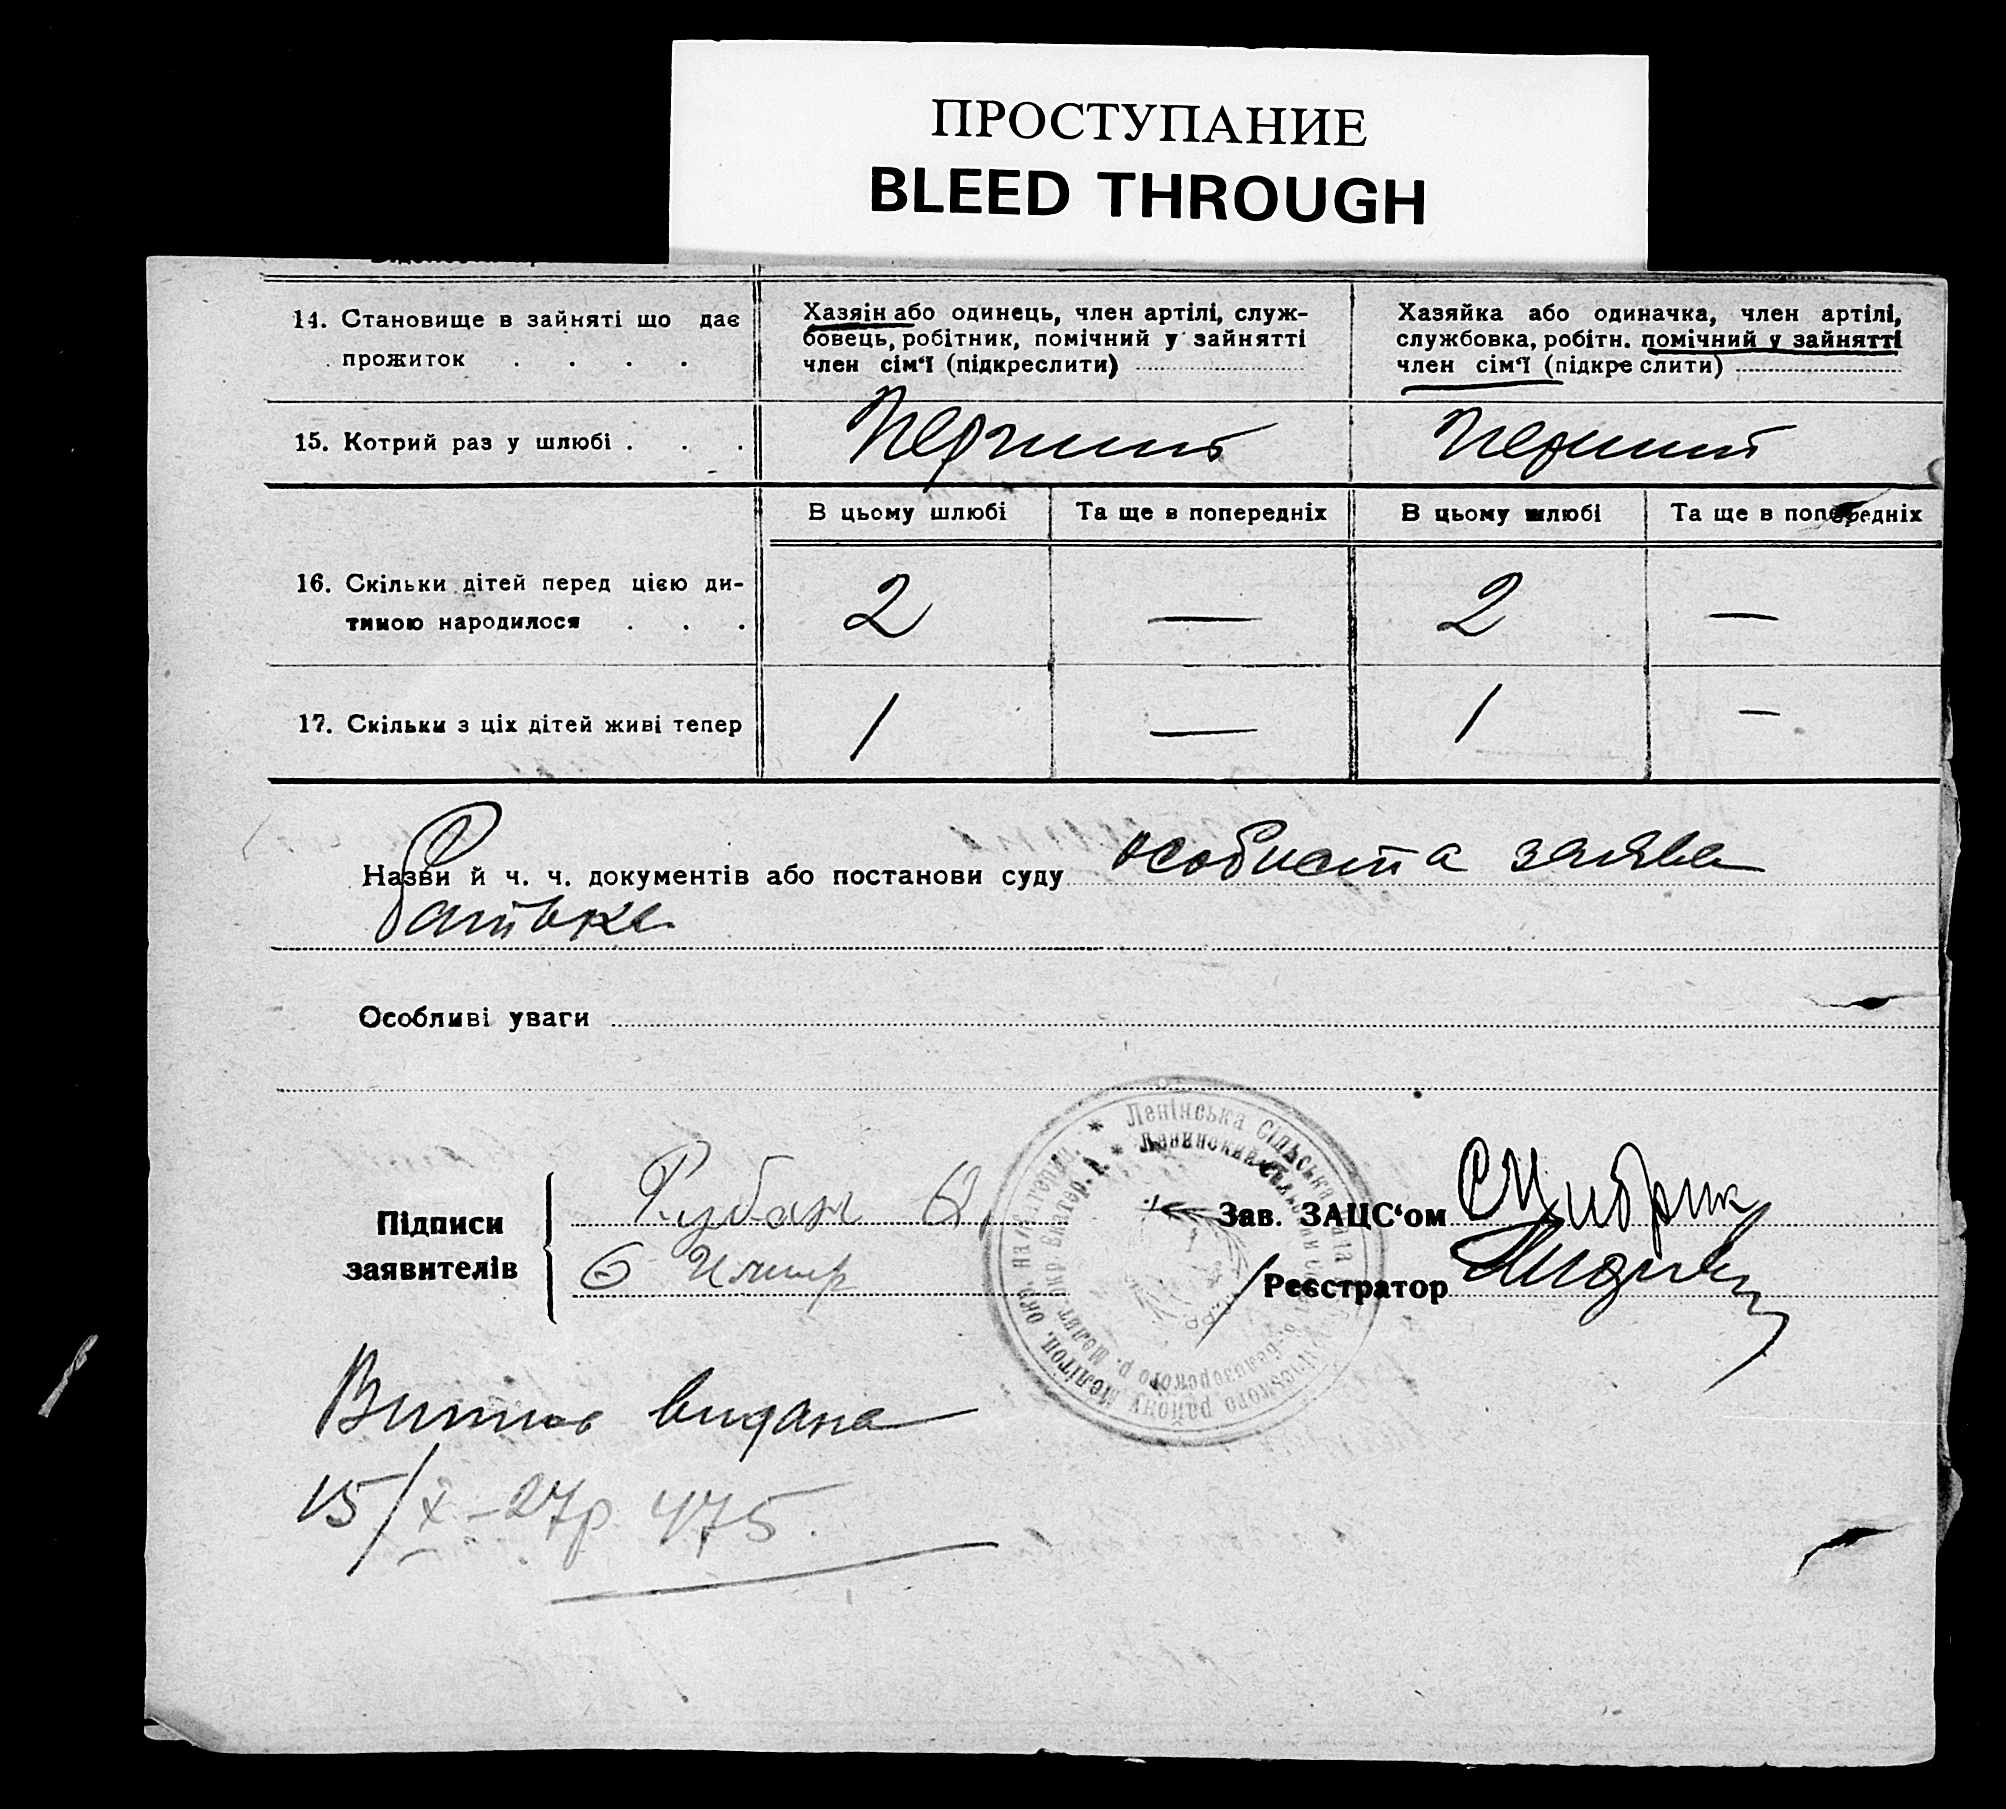 ПРОСТУПАНИЕ
BLEED THROUGH
14. Становище в зайняті що дає
прожиток . . . .
Хазяін або одинець, член артілі, служ-
бовець, робітник, помічний у зайнятті
член сім‘ї (підкреслити)
Хазяйка або одиначка, член артілі,
службовка, робітн. помічний у зайнятті
член сім‘ї (підкреслити)
15. Котрий раз у шлюбі . . .
Перший
Перший
В цьому шлюбі
Та ще в попередніх
В цьому шлюбі
Та ще в попередніх
16. Скільки дітей перед цією ди-
тиною народилося . . .
2 — 2 —
17. Скільки з ціх дітей живі тепер
1 — 1 —
Назви й ч. ч. документів або постанови суду особиста заява
батька
Особливі уваги
Підписи
заявителів
Рубан
Зав. ЗАЦС‘ом
Реєстратор
Ленінська Сільська Рада
району Мелітоп. окр.
Ленинский Сельский
Белозерского р. Мелит. окр. Екатер.
Витяг видана
15/X-27р 475.